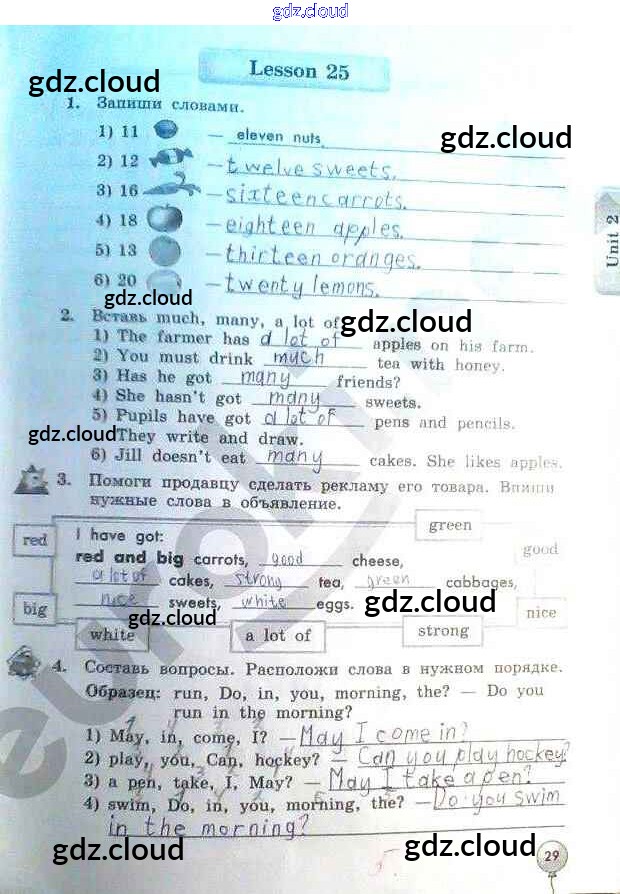 gdz.cloud
Lesson 25
gdz.cloud
1. Запиши словами.
1) 11 — eleven nuts.
gdz.cloud
2) 12 — twelve sweets.
3) 16 — sixteen carrots.
4) 18 — eighteen apples.
Unit 2
5) 13 — thirteen oranges.
6) 20 — twenty lemons.
gdz.cloud
2. Вставь much, many, a lot of
gdz.cloud
1) The farmer has a lot of apples on his farm.
2) You must drink much tea with honey.
3) Has he got many friends?
4) She hasn't got many sweets.
5) Pupils have got a lot of pens and pencils.
gdz.cloud
They write and draw.
6) Jill doesn't eat many cakes. She likes apples.
3. Помоги продавцу сделать рекламу его товара. Впиши
нужные слова в объявление.
green
red
I have got:
good
red and big carrots, good cheese,
a lot of cakes, strong tea, green cabbages,
nice sweets, white eggs.
gdz.cloud
big
gdz.cloud
nice
white a lot of strong
4. Составь вопросы. Расположи слова в нужном порядке.
Образец: run, Do, in, you, morning, the? — Do you
run in the morning?
1) May, in, come, I? — May I come in?
2) play, you, Can, hockey? — Can you play hockey?
3) a pen, take, I, May? — May I take a pen?
4) swim, Do, in, you, morning, the? — Do you swim
in the morning?
gdz.cloud
gdz.cloud
29